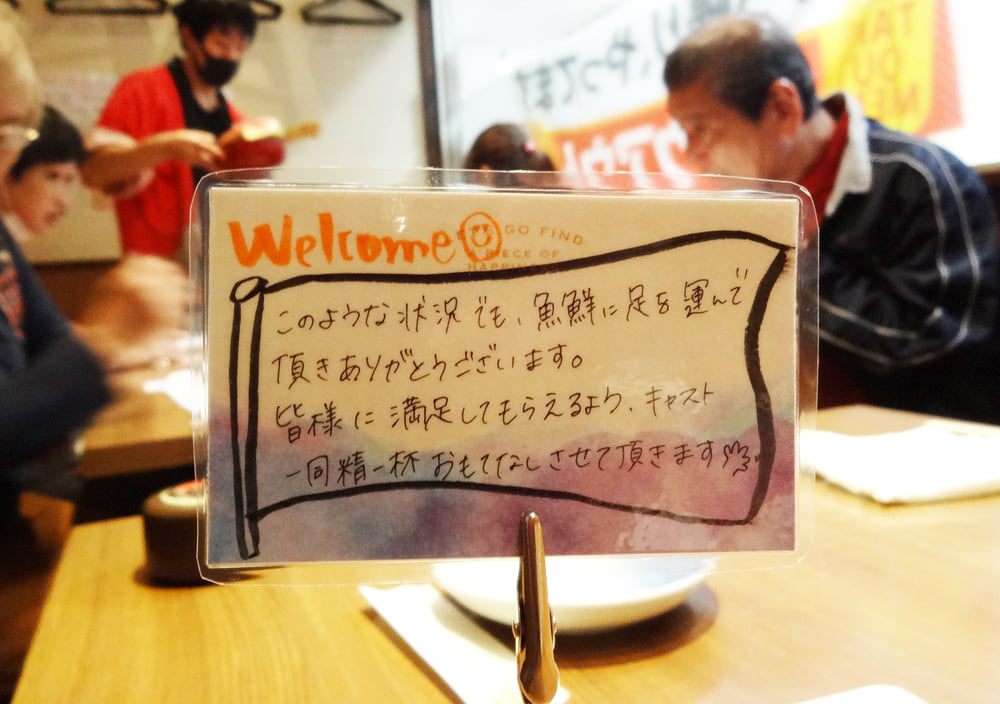 Welcome
GO FIND
PIECE OF
このような状況でも、魚鮮に足を運んで
頂きありがとうございます。
皆様に満足してもらえるよう、キャスト
一同精一杯おもてなしさせて頂きます
やってます